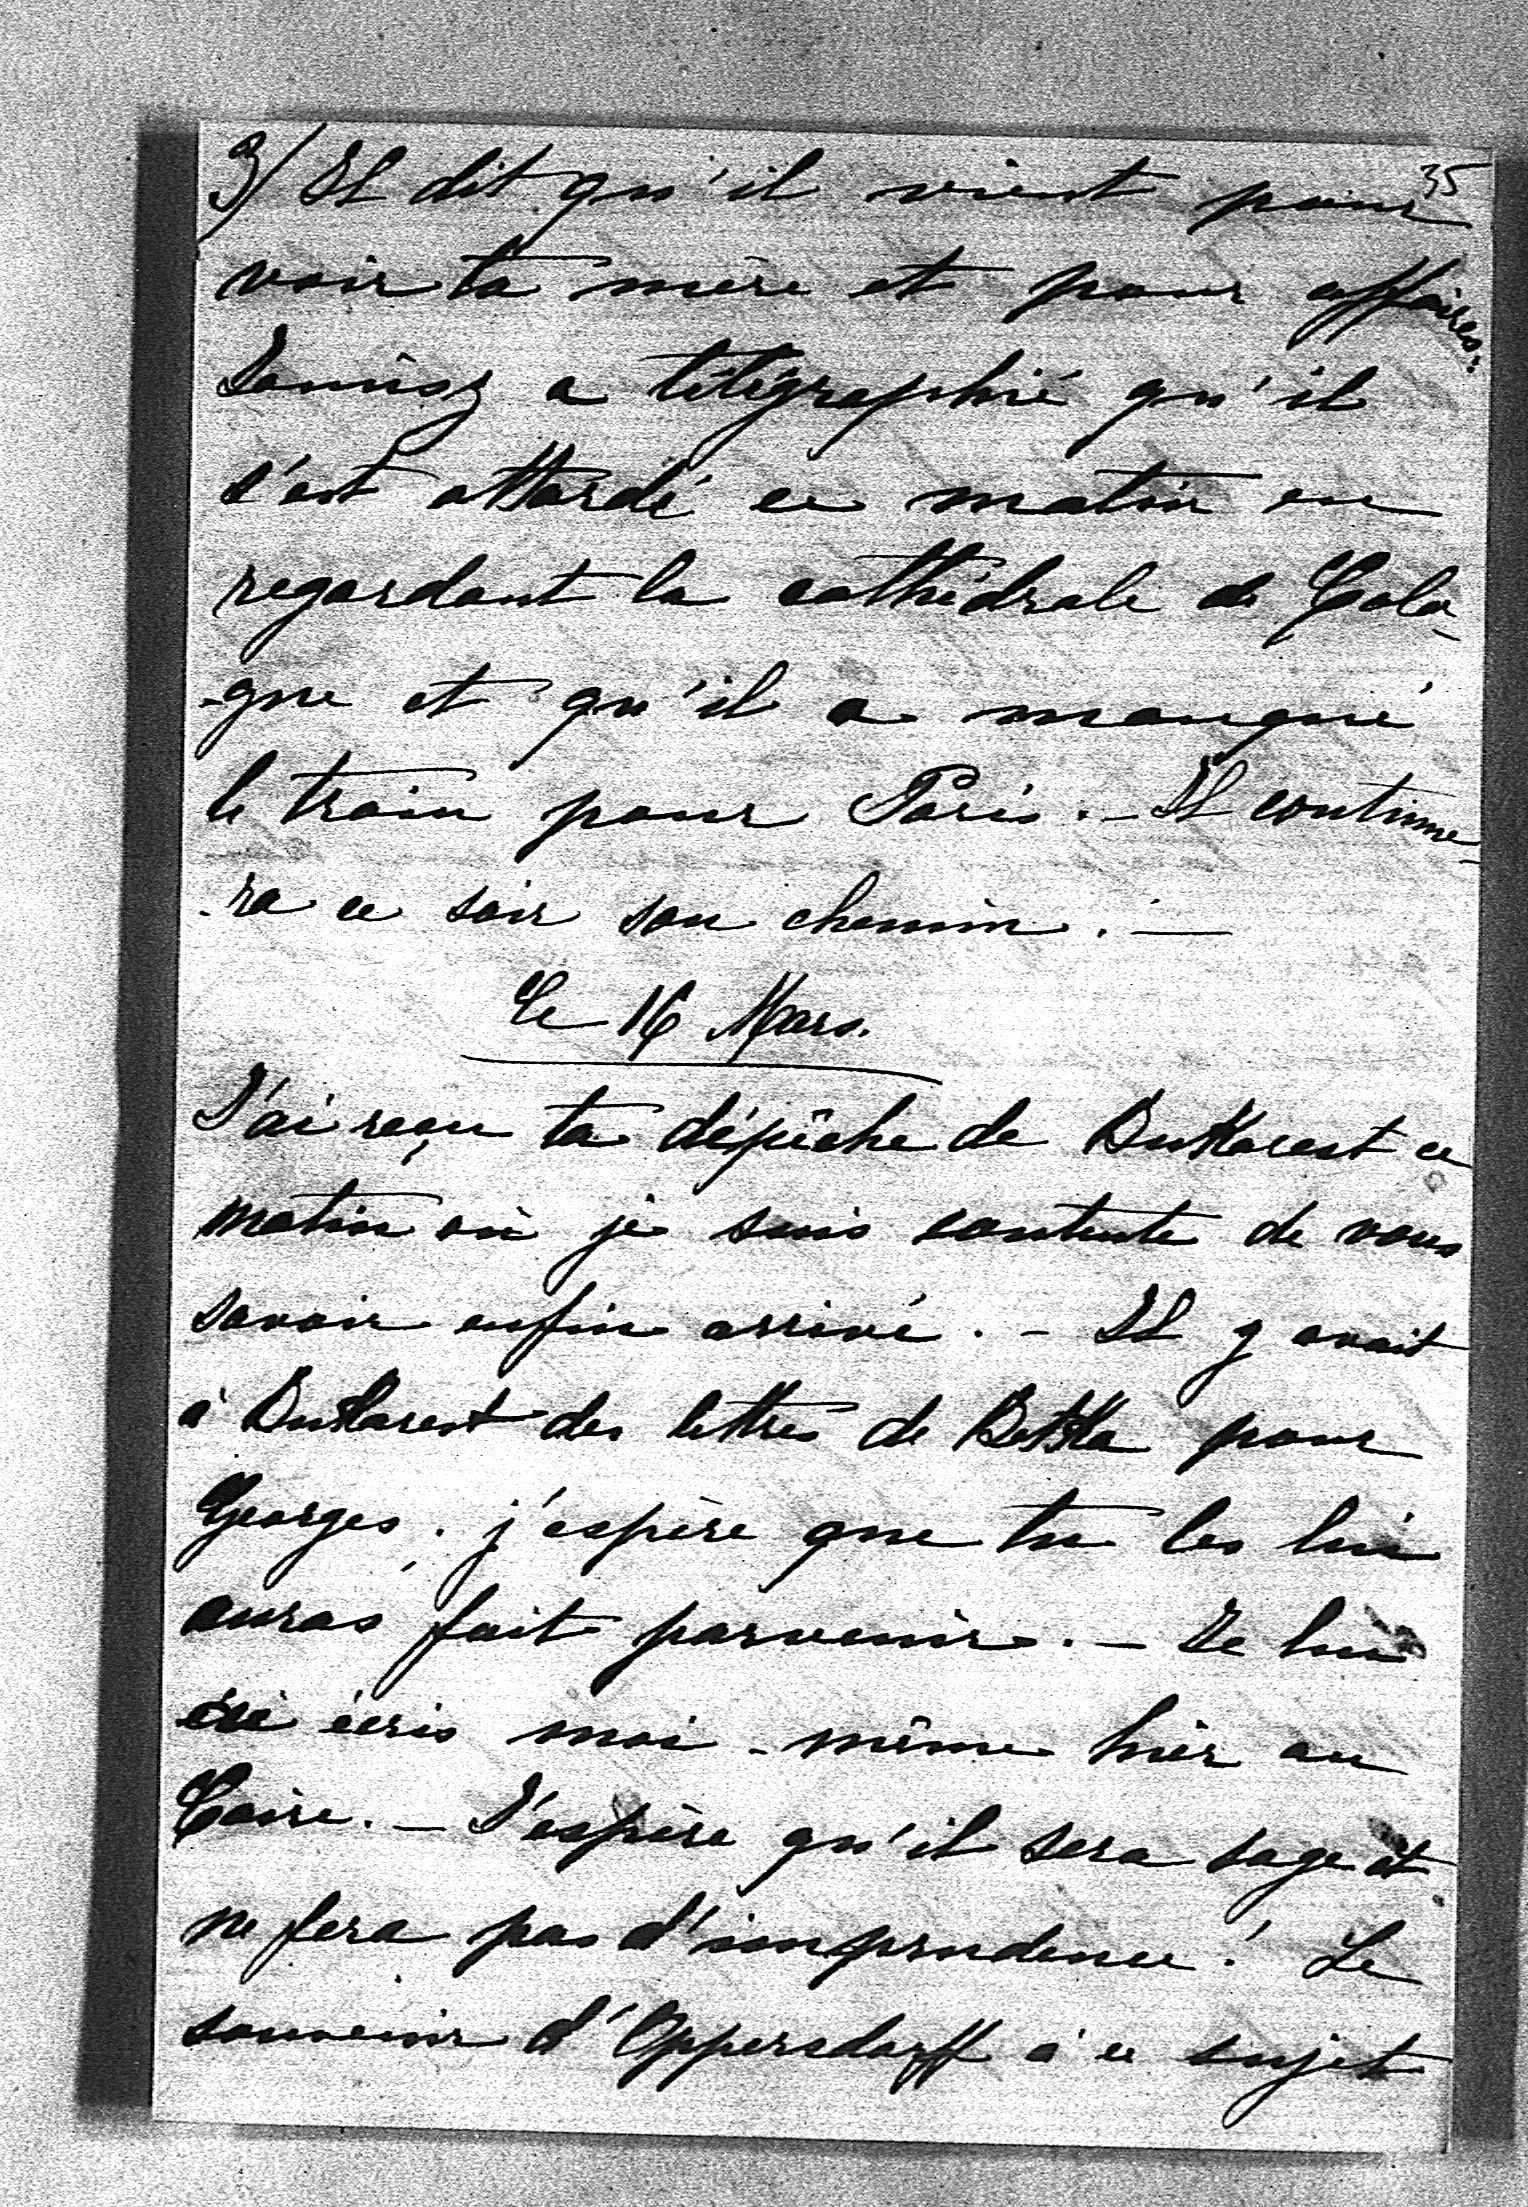 35
3/ Il dit qu'il vient pour
voir ta mère et pour affaires.
a télégraphié qu'il
s'est attardé ce matin en
regardant la cathédrale de Colo-
-gne et qu'il a manqué
le train pour Paris. - Il continue-
-ra ce soir son chemin. —
Le 16 Mars.
J'ai reçu ta dépêche de Bukarest ce
matin où je suis contente de vous
savoir enfin arrivé. - Il y avait
à Bukarest des lettres de Betka pour
Georges; j'espère que tu les lui
auras fait parvenir. - Je lui
écris moi-même hier au
Caire. - J'espère qu'il sera sage et
ne fera pas d'imprudence! Le
souvenir d'Oppersdorff à ce sujet